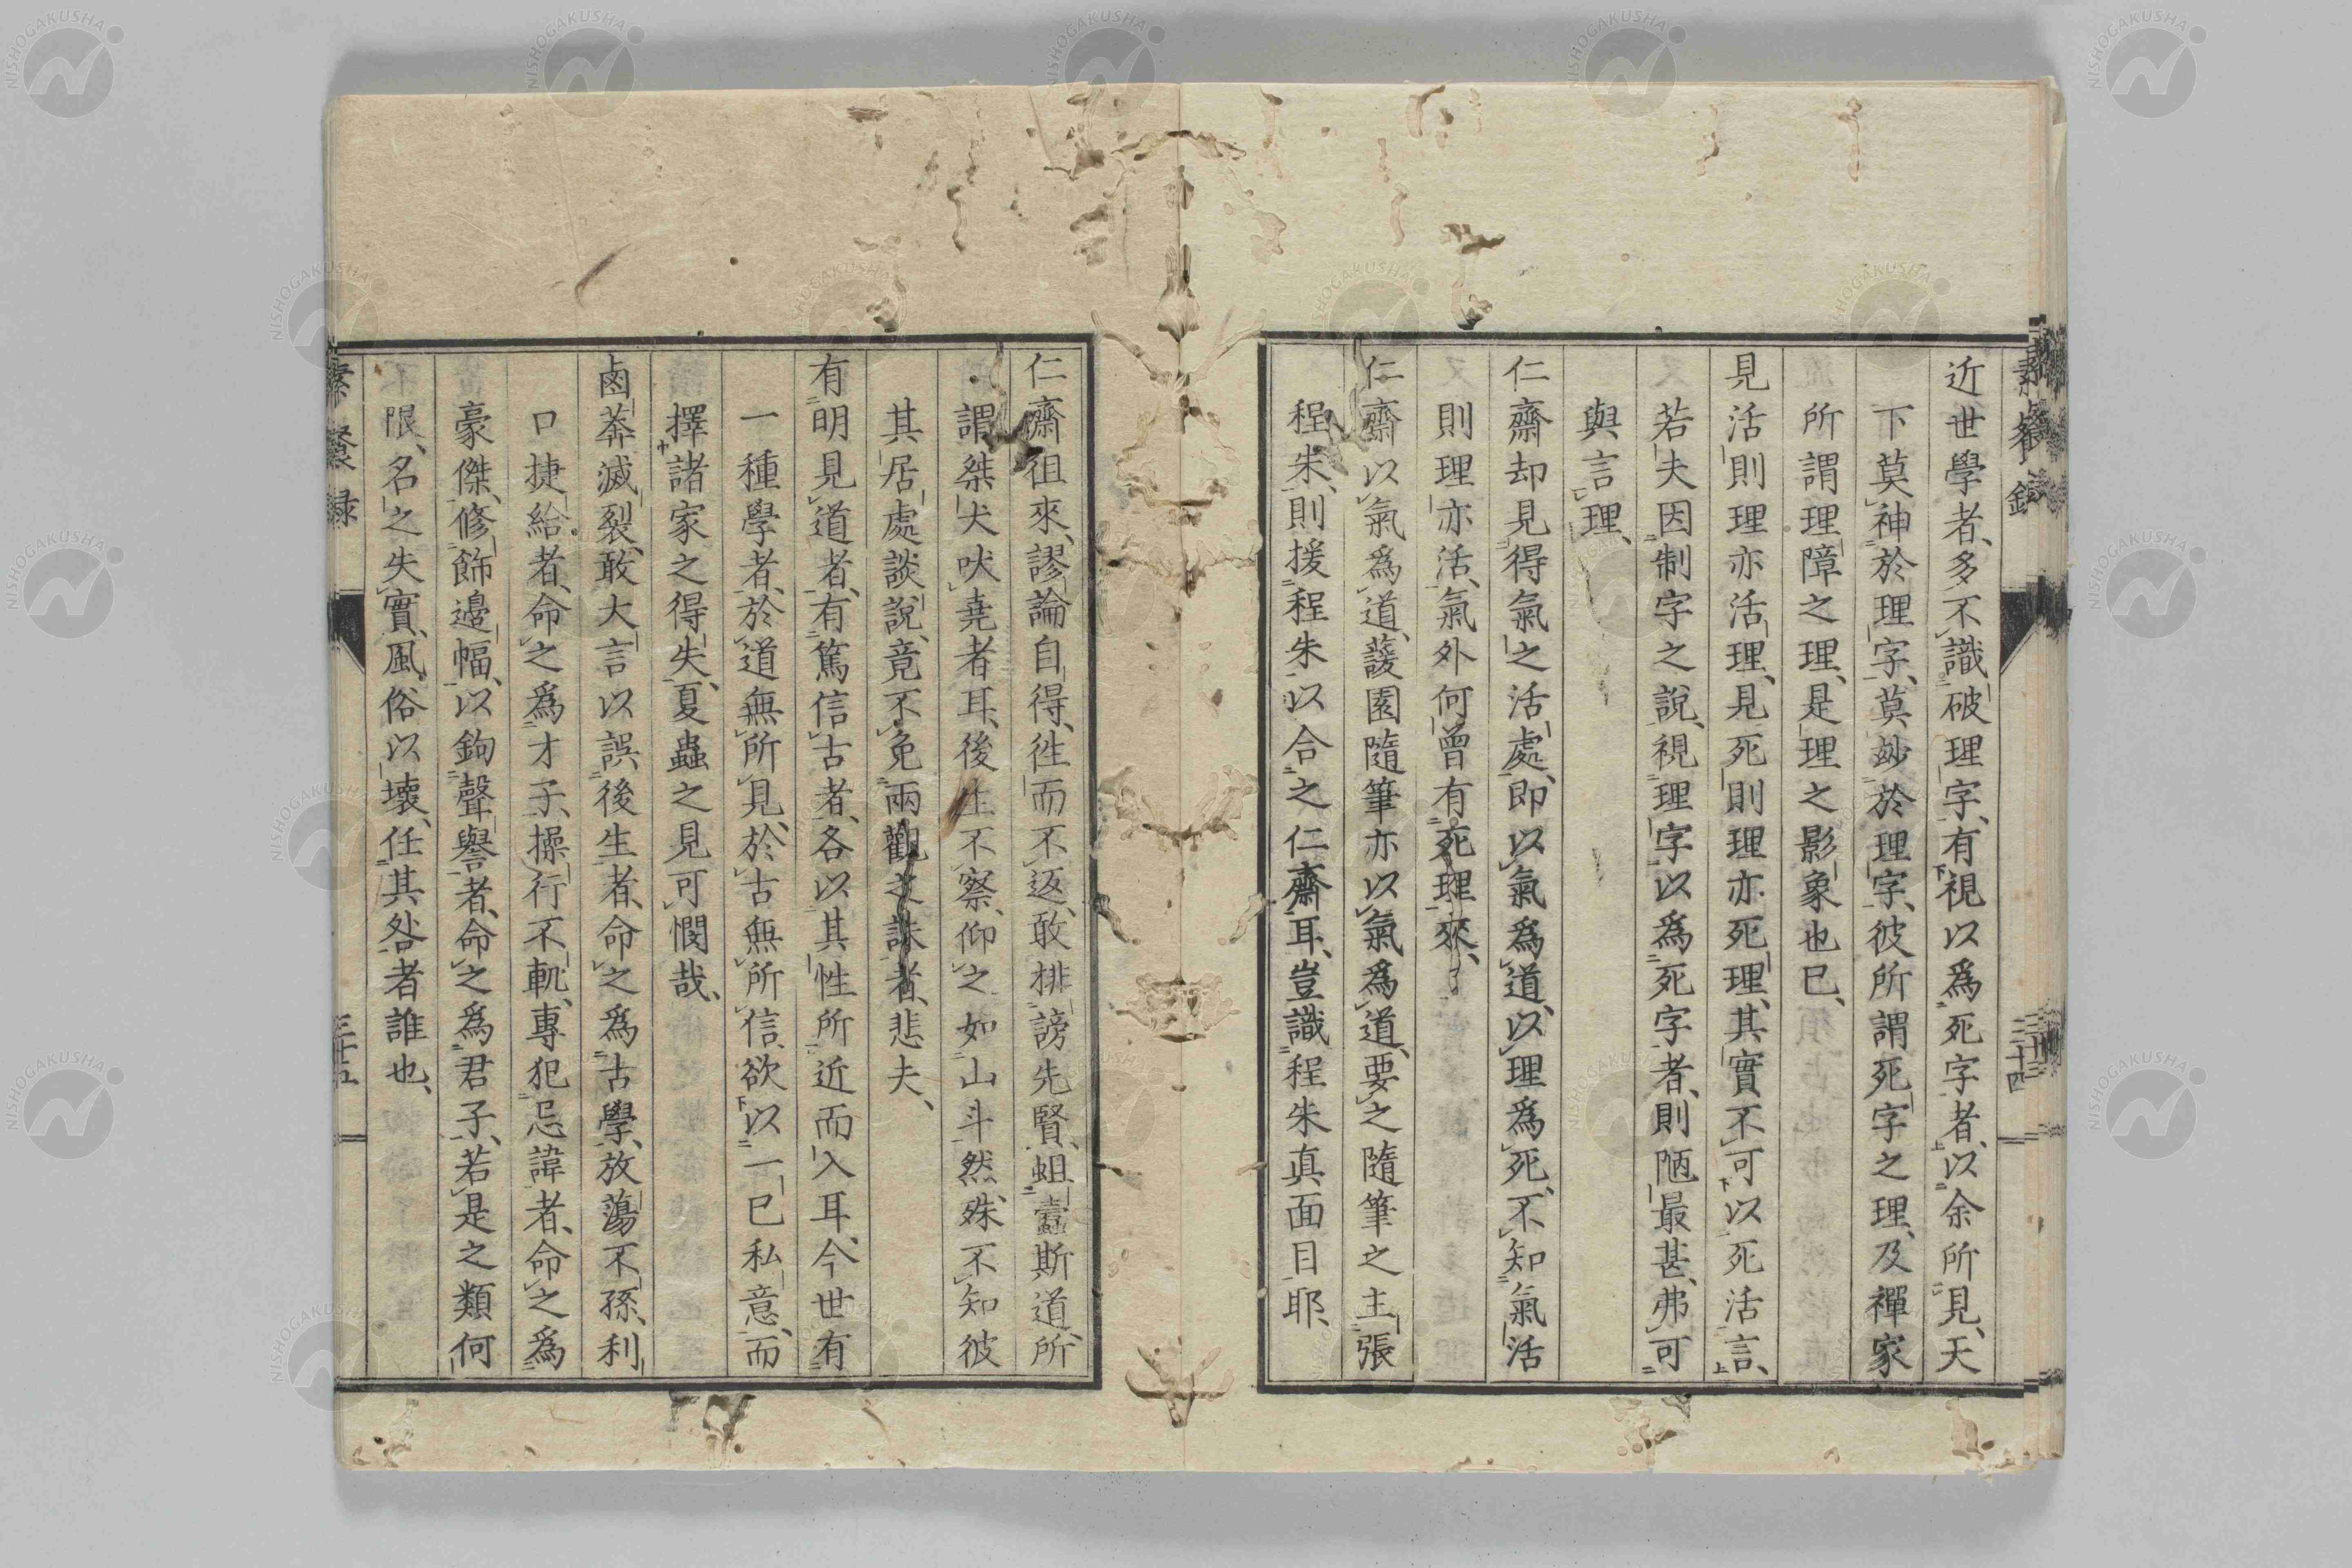 近世學者、多不識破理字、有視以爲死字者、以余所見、天
下莫神於理字、莫妙於理字、彼所謂死字之理、及禪家
所謂理障之理、是理之影象也已、
見活則理亦活理、見死則理亦死理、其實不可以死活言、
若夫因制字之說、視理字以爲死字者、則陋最甚、弗可
與言理、
仁齋却見得氣之活處、即以氣爲道、以理爲死、不知氣活
則理亦活、氣外何曾有死理來、
仁齋以氣爲道、蘐園隨筆亦以氣爲道、要之隨筆之主張
程朱、則援程朱以合之仁齋耳、豈識程朱真面目耶、
三十四
仁齋徂來、謬論自得、往而不返、敢排謗先賢、蛆蠹斯道、所
謂桀犬吠堯者耳、後生不察、仰之如山斗然、殊不知彼
其居處談說、竟不免兩觀之誅者、悲夫、
有明見道者、有篤信古者、各以其性所近而入耳、今世有
一種學者、於道無所見、於古無所信、欲以一已私意、而
擇諸家之得失、夏蟲之見可憫哉、
鹵莽滅裂、敢大言以誤後生者、命之爲古學、放蕩不孫、利
口捷給者、命之爲才子、操行不軌、專犯忌諱者、命之爲
豪傑、修飾邊幅、以鉤聲譽者、命之爲君子、若是之類何
限、名之失實、風俗以壞、任其咎者誰也、
三十五
NISHOGAKUSHA